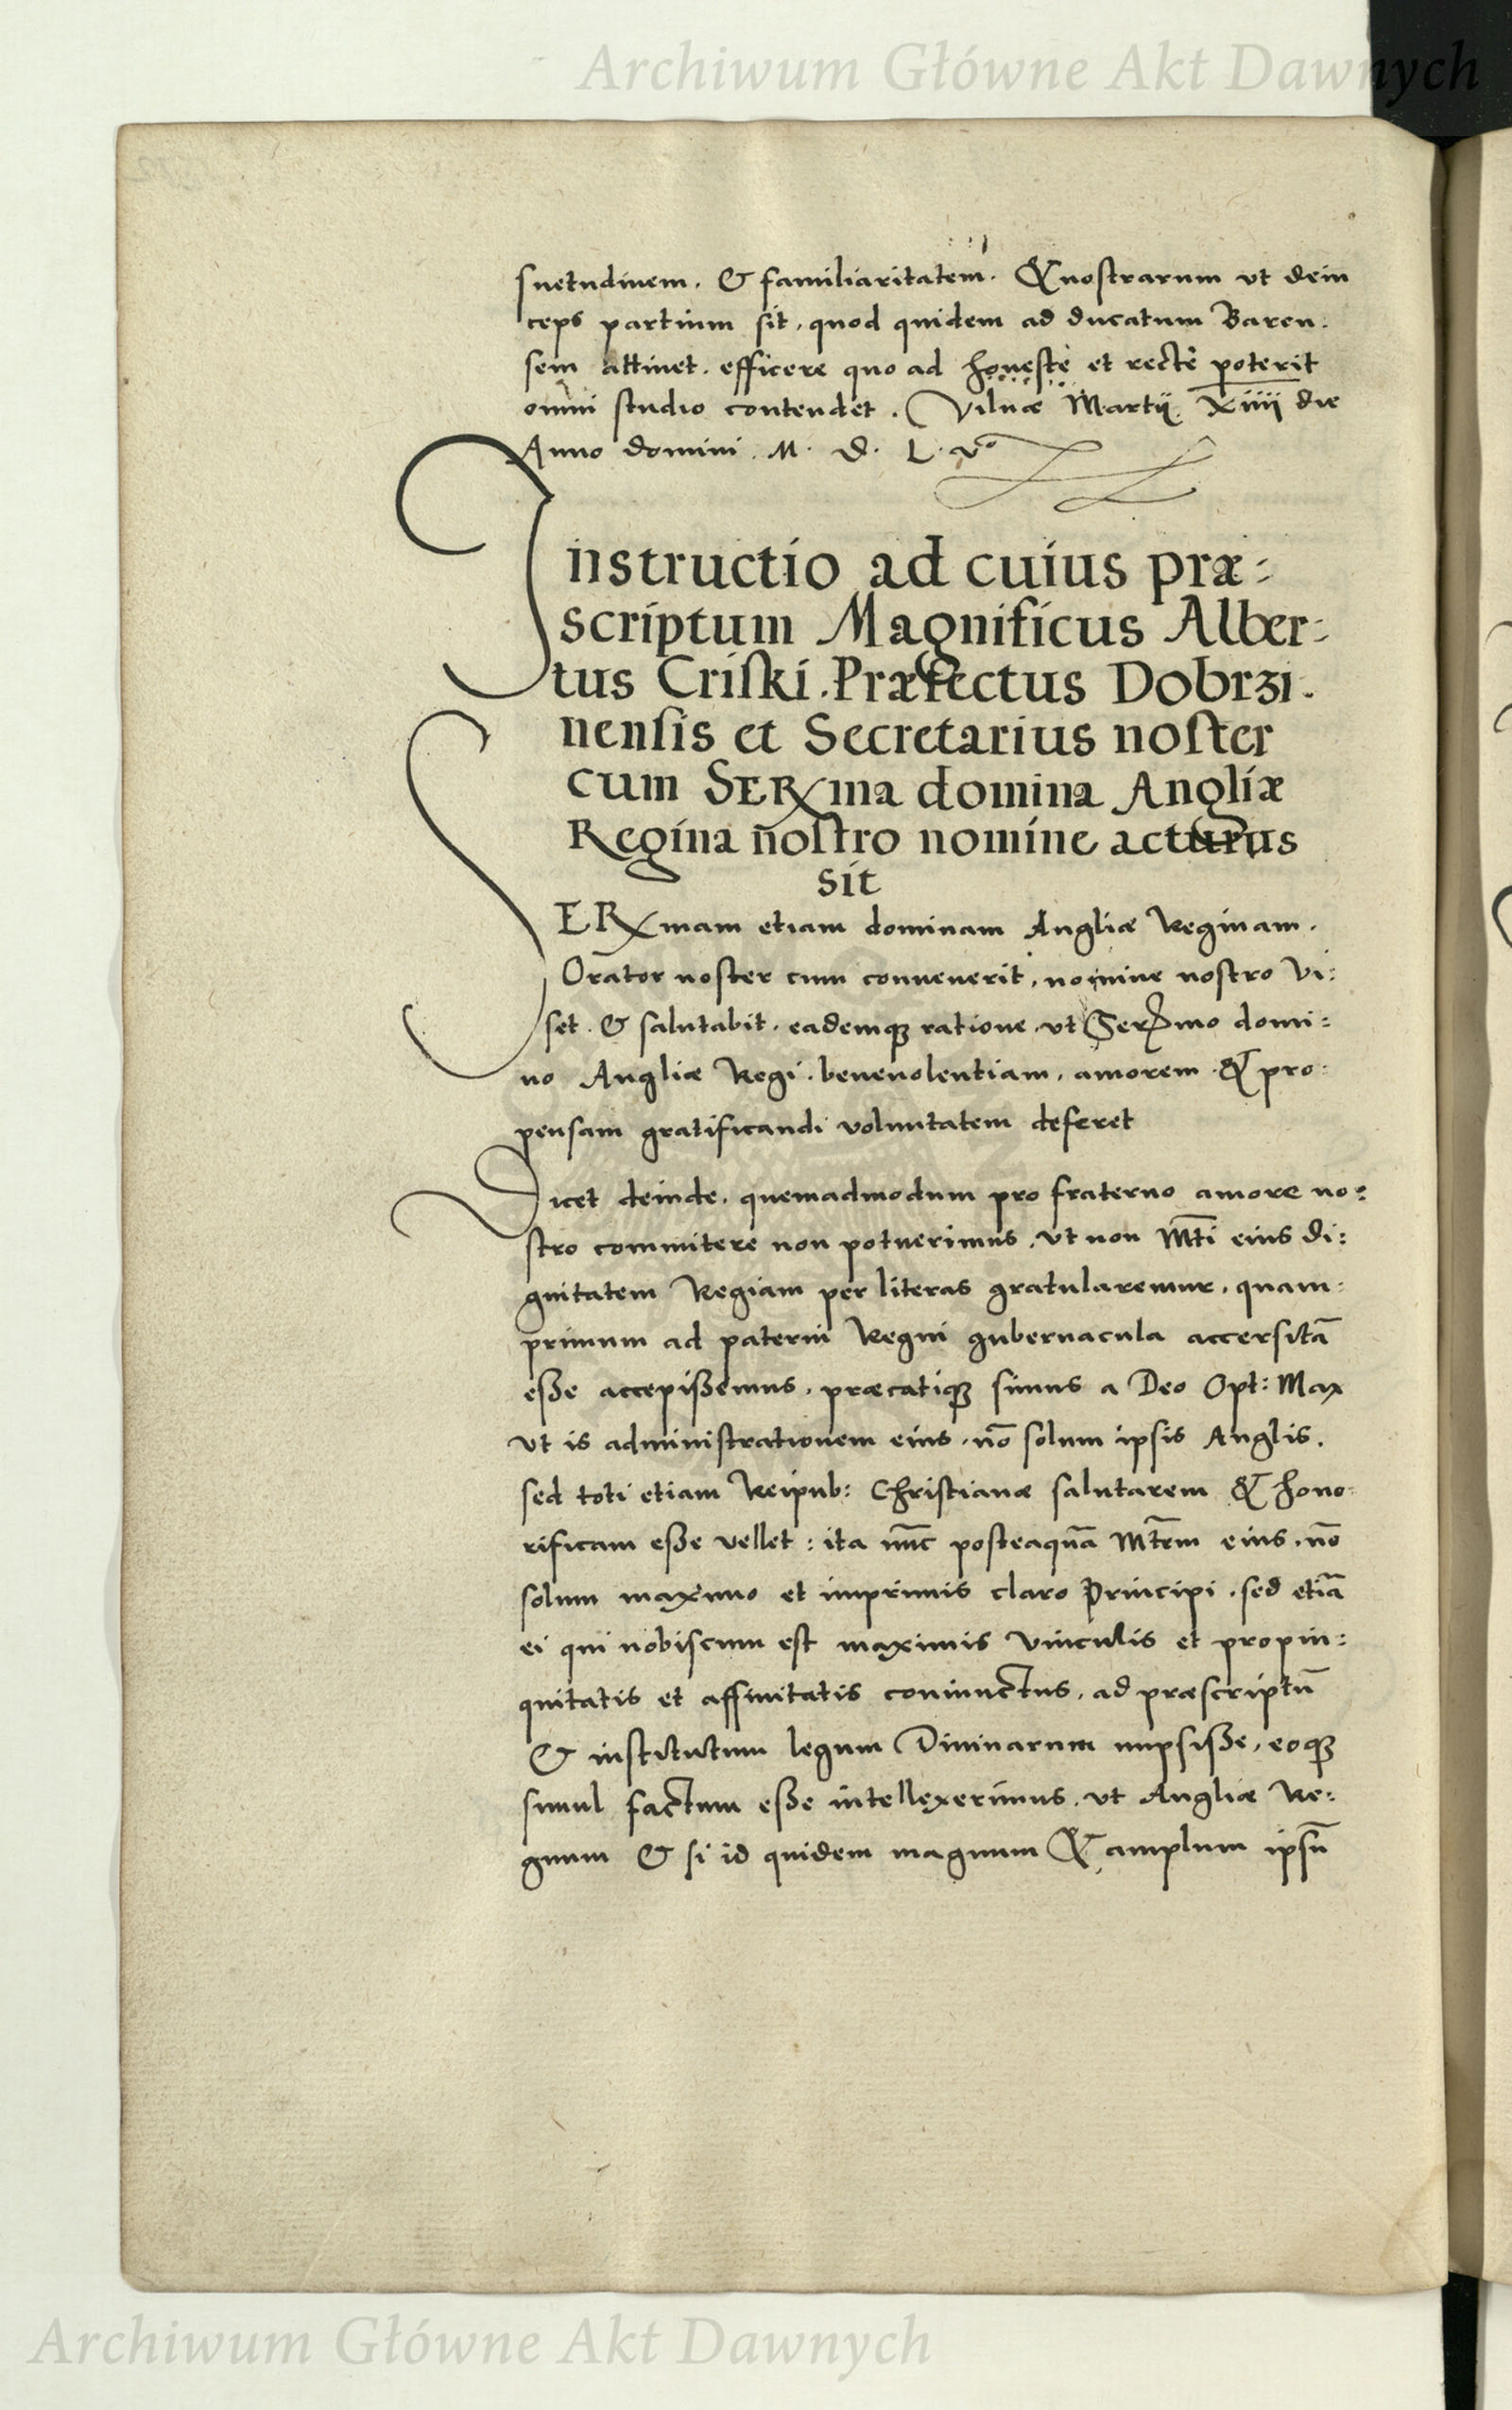 Archiwum Główne Akt Dawnych
suetudinem. & familiaritatem. & nostrarum ut dein
ceps partium sit, quod quidem ad ducatum Baren:
sem attinet. efficere quo ad honestè et rectè poterit
omni studio contendet. Vilnæ Martij XIIII die
Anno domini. M. D. L. vº
Instructio ad cuius præ:
scriptum Magnificus Alber:
tus Criski. Præfectus Dobrzi:
nensis et Secretarius noster
cum SERma domina Angliæ
Regina nostro nomine acturus
sit
SERmam etiam dominam Angliæ Reginam.
Orator noster cum convenerit, nomine nostro vi:
set. & salutabit. eademq3 ratione, ut Sermo domi:
no Angliæ Regi. benevolentiam, amorem & pro:
pensam gratificandi voluntatem deferet
Dicet deinde, quemadmodum pro fraterno amore no:
stro committere non potuerimus, ut non Mti eius di:
gnitatem Regiam per literas gratularemur, quam:
primum ad paterni Regni gubernacula accersitã
esse accepissemus, præcatiq3 simus a Deo Opt: Max
ut is administrationem eius, nõ solum ipsis Anglis.
sed toti etiam Reipub: Christianæ salutarem & hono:
rificam esse vellet: ita nũc posteaquã Mtem eius, nõ
solum maximo et imprimis claro Principi, sed etiã
ei qui nobiscum est maximis vinculis et propin:
quitatis et affinitatis coniunctus, ad præscriptũ
& institutum legum Divinarum nupsisse, eoq3
simul factum esse intellexerimus, ut Angliæ Re:
gnum & si id quidem magnum & amplum ipsũ
Archiwum Główne Akt Dawnych